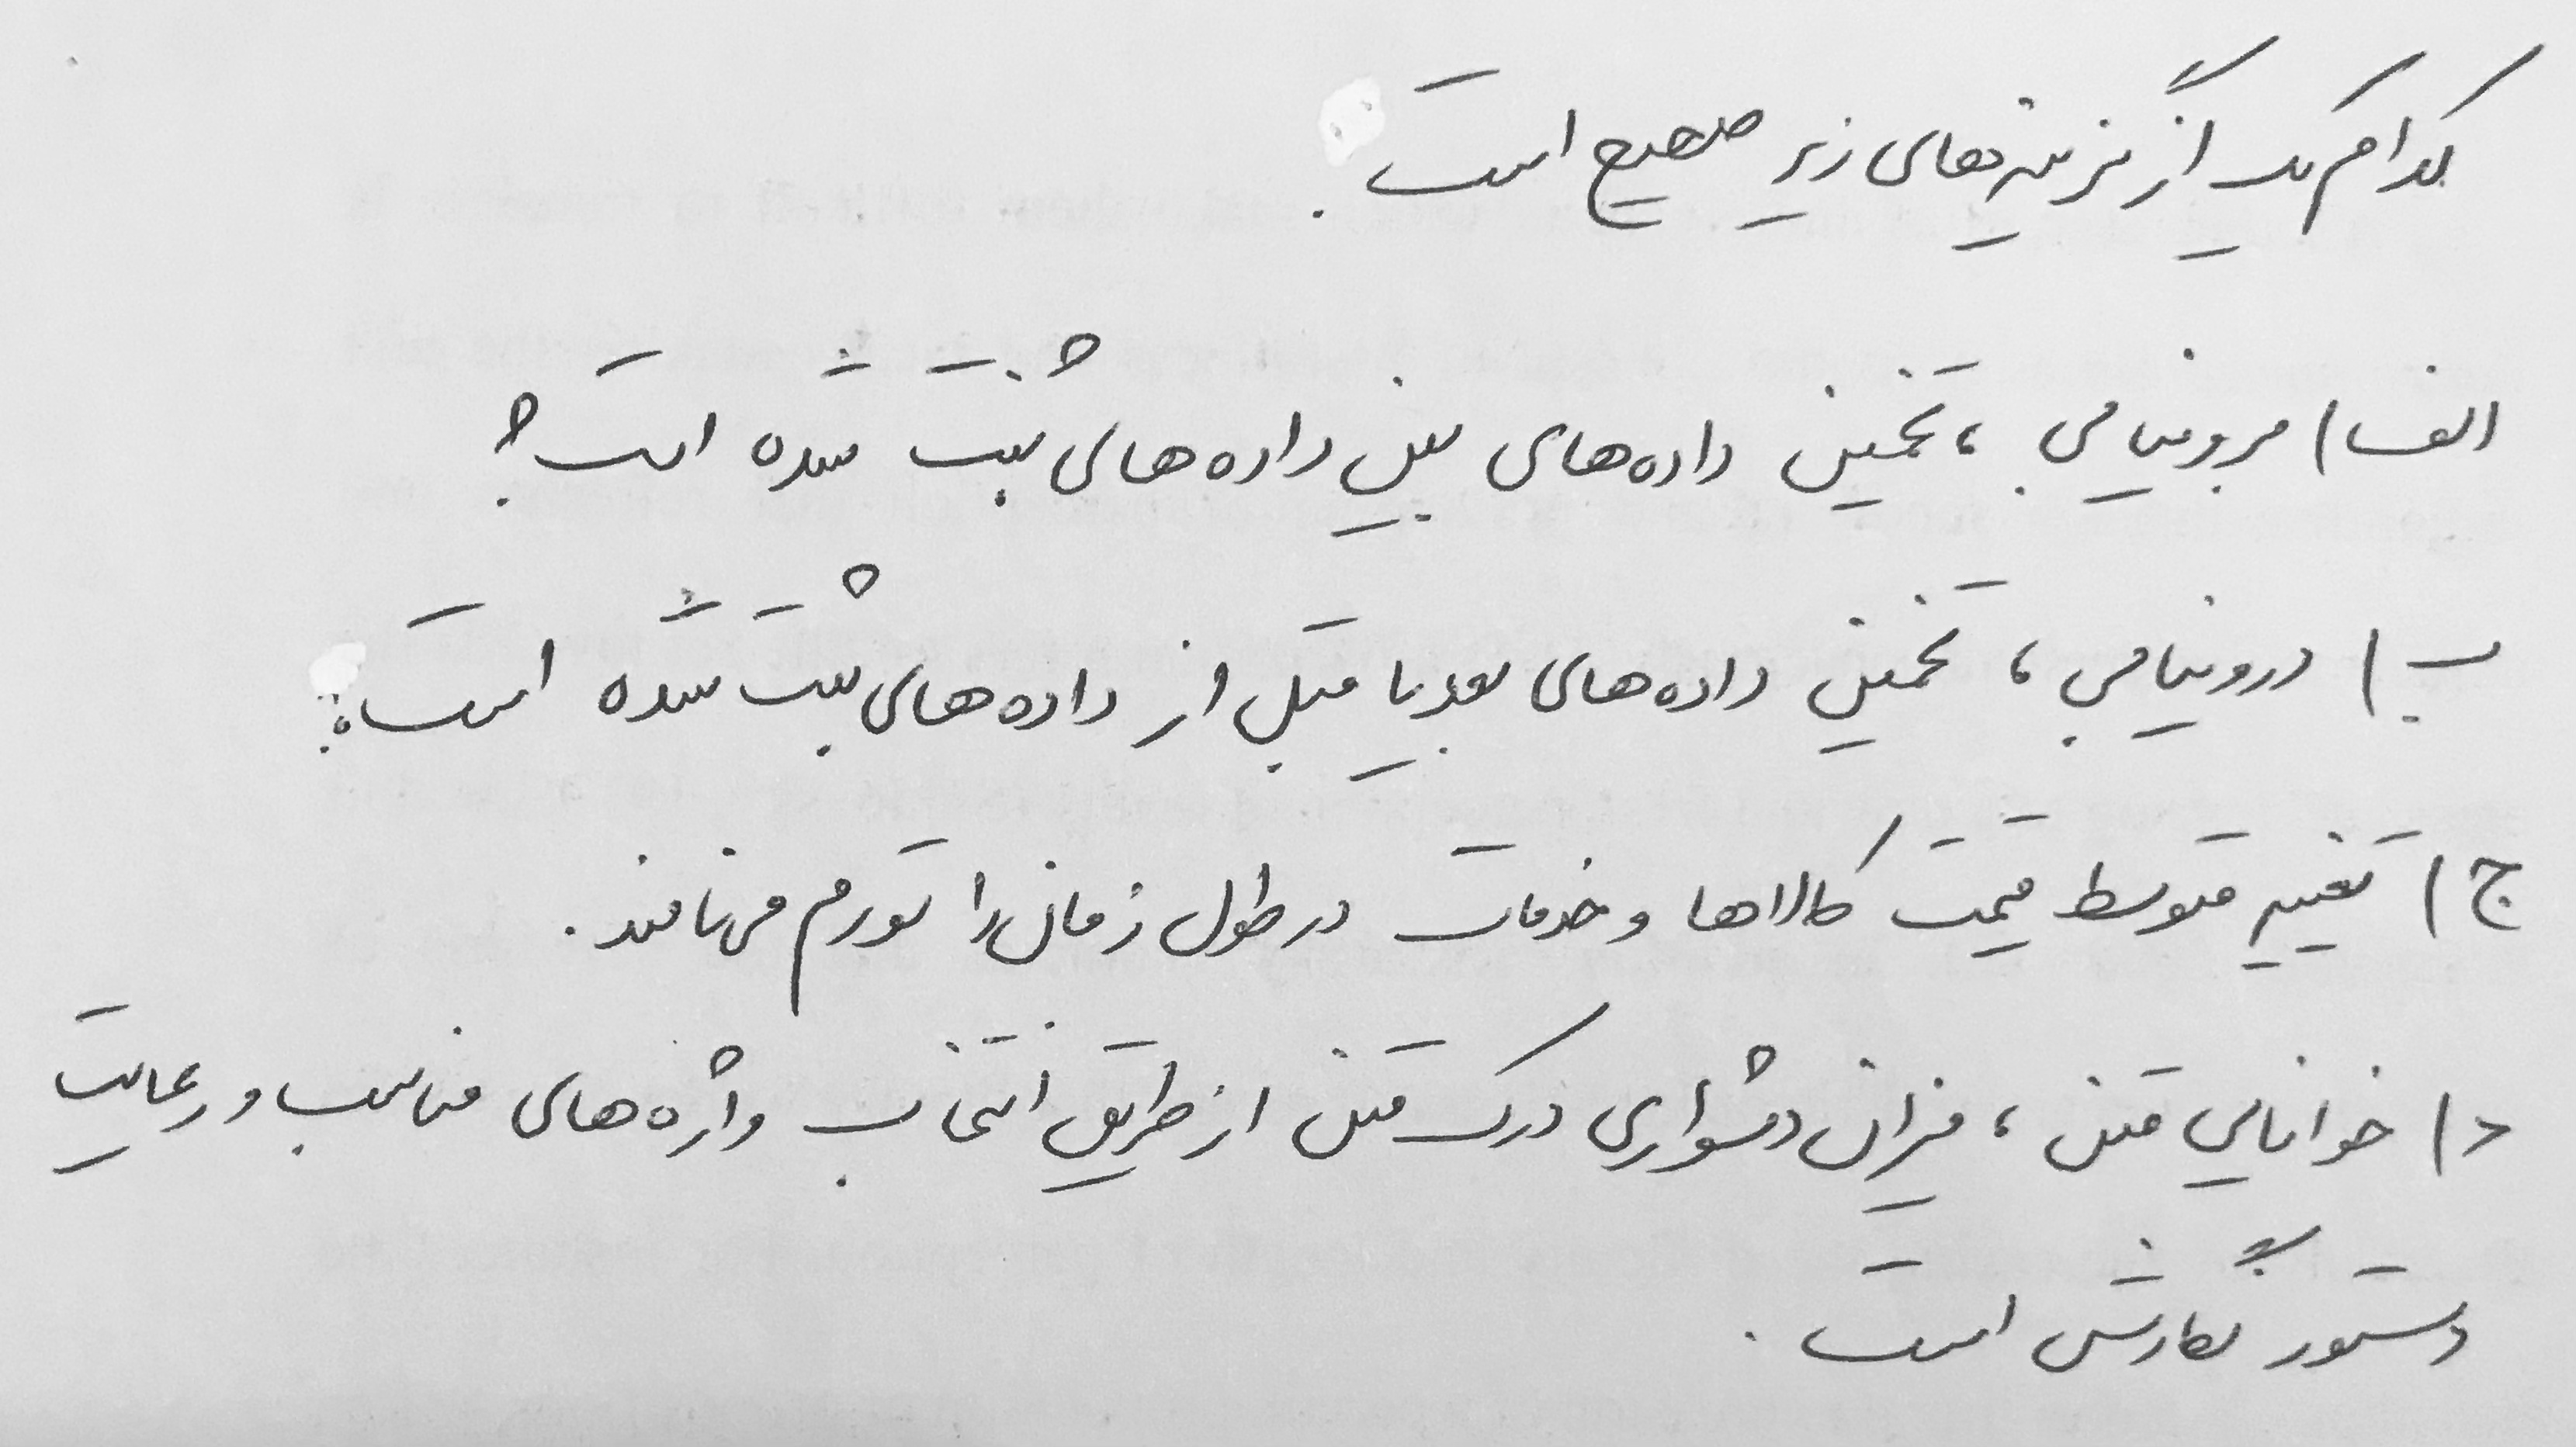 کدام یک از گزینه‌های زیر صحیح است.
الف) برونیابی، تخمین داده‌های بین داده‌های ثبت شده است؟
ب) درونیابی، تخمین داده‌های بعد یا قبل از داده‌های ثبت شده است.
ج) تغییر متوسط قیمت کالاها و خدمات در طول زمان را تورم می‌نامند.
د) خوانایی متن، میزان دشواری درک متن از طریق انتخاب واژه‌های مناسب و رعایت
دستور نگارش است.